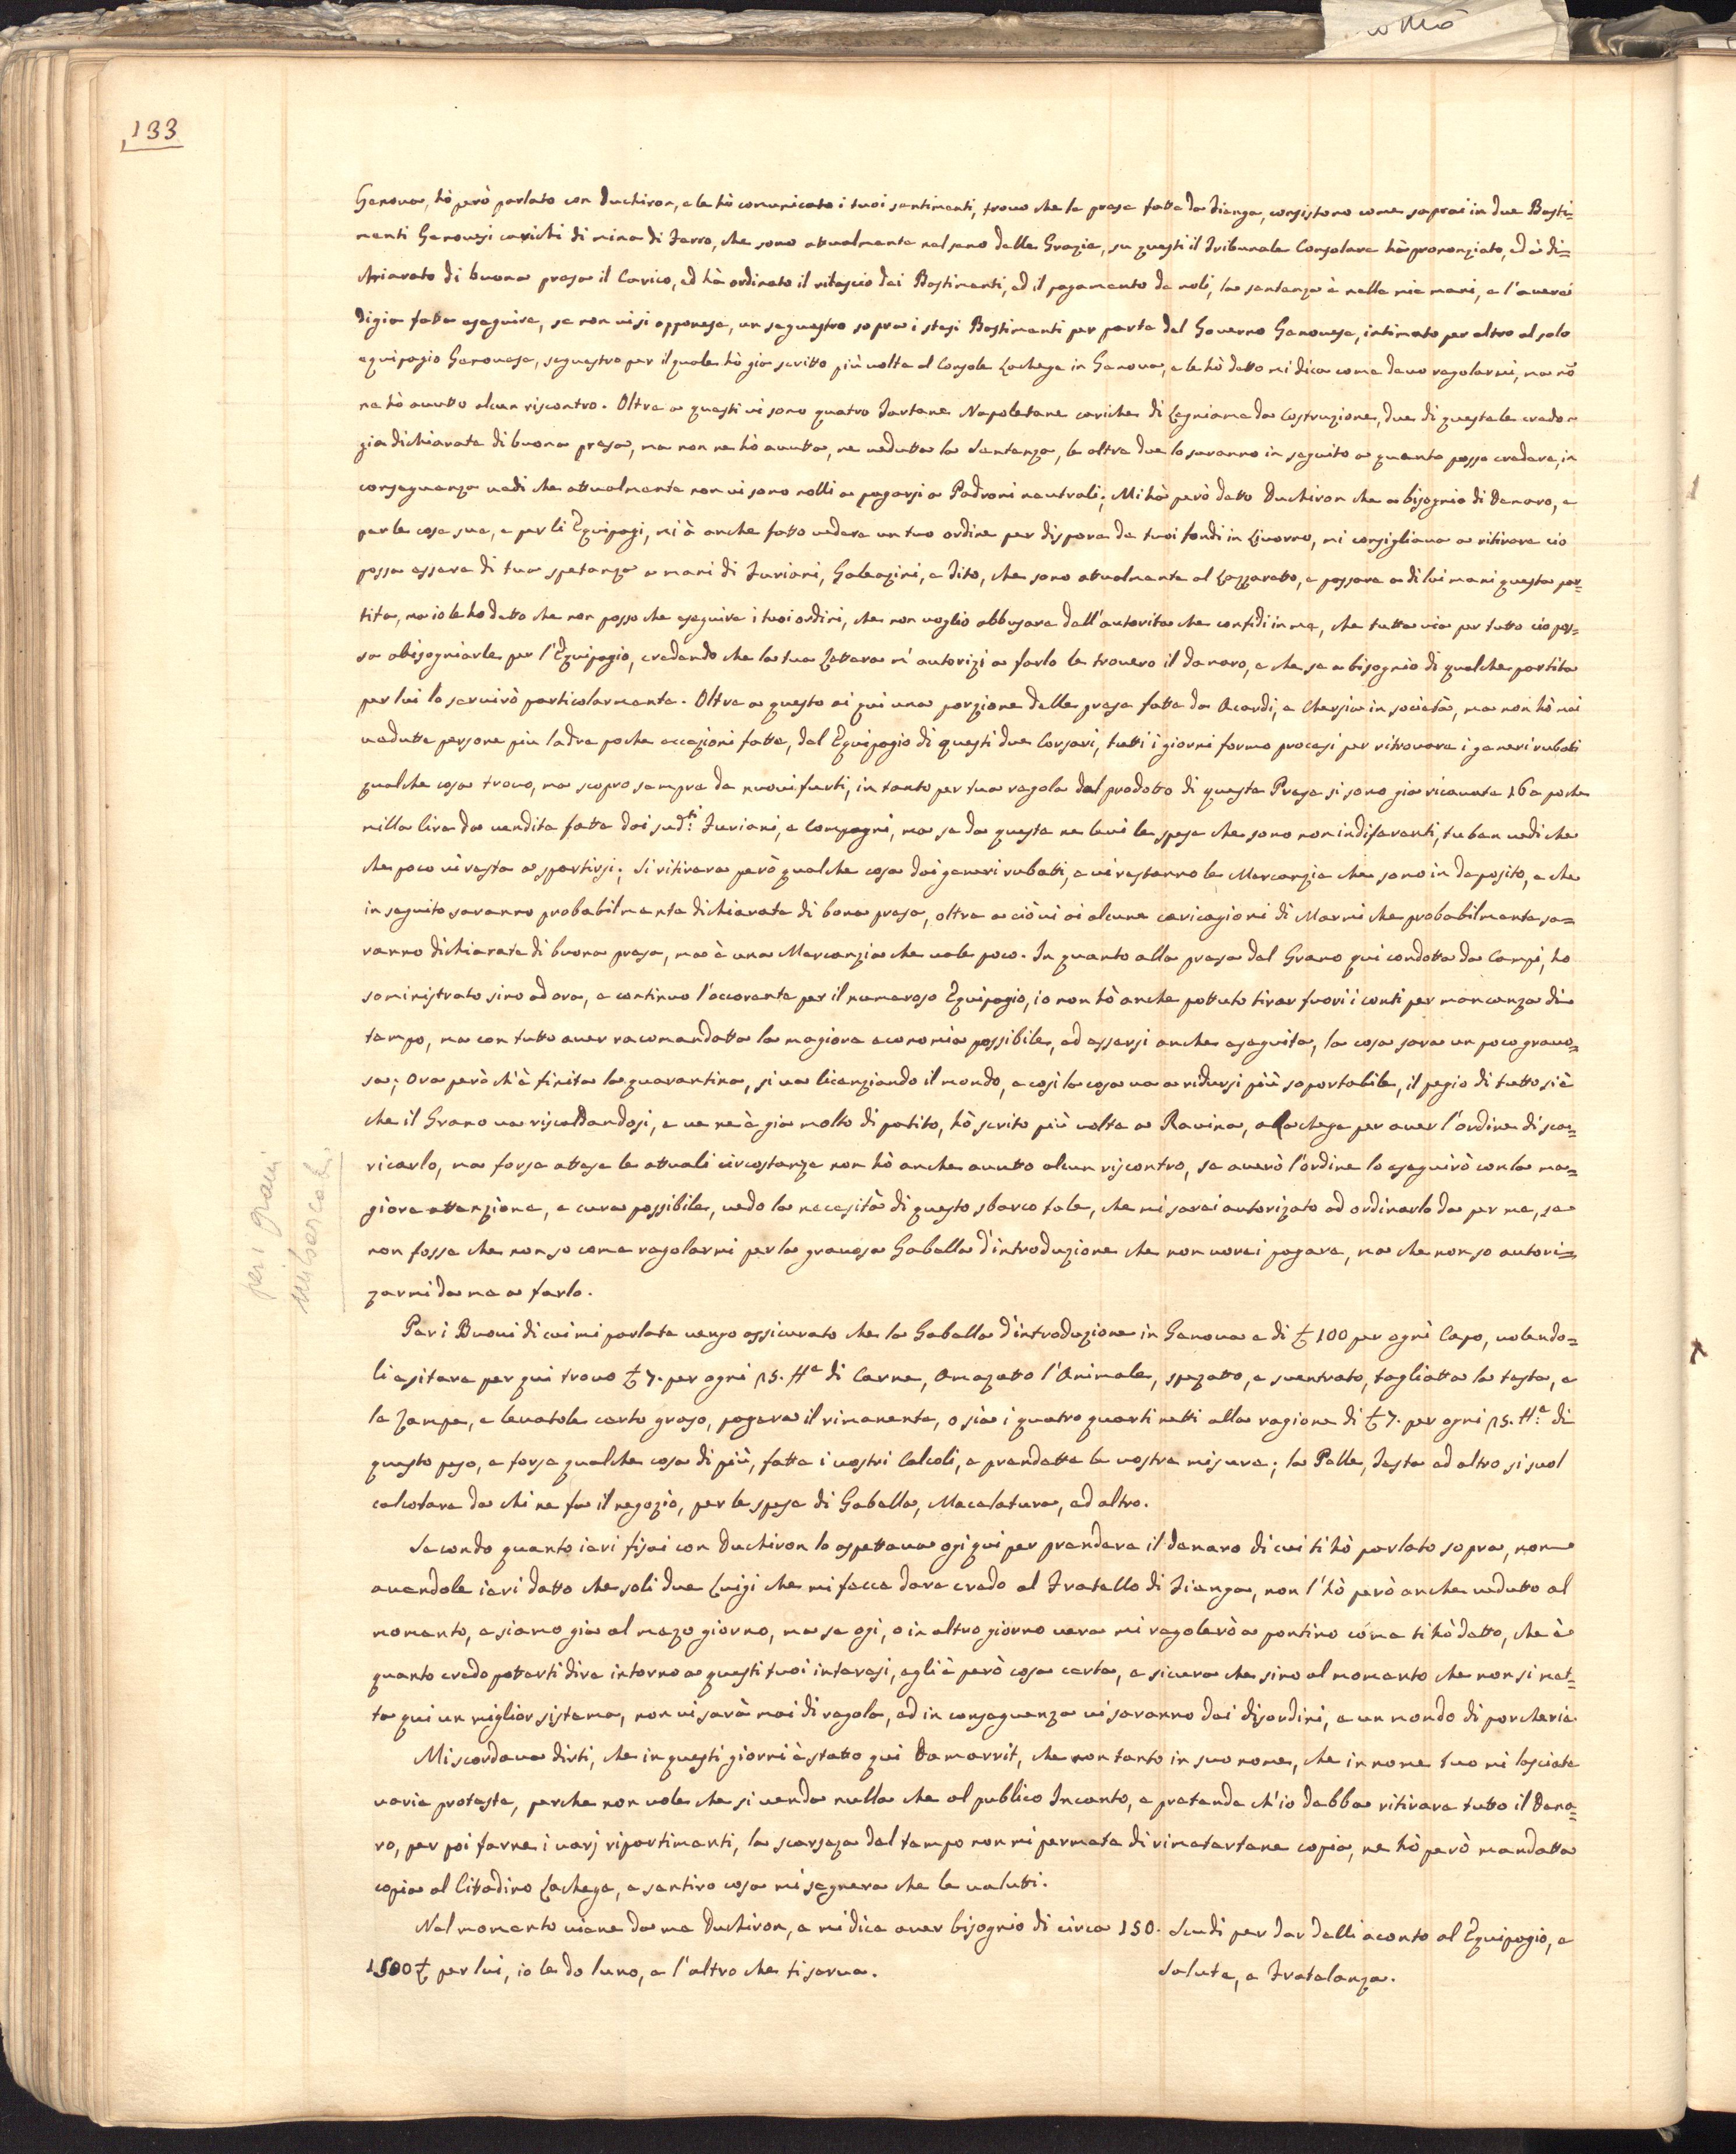 133
Genova, hò però parlato con Duchiron, e le hò comunicato i tuoi sentimenti, trovo che le prese fatte da Fienga, consistono come saprai in due Basti-
menti Genovesi carichi di mina di Ferro, che sono attualmente nel seno delle Grazie, su questi il Tribunale Consolare hà prononziato, ed à di-
chiarato di buona presa il Carico, ed hà ordinato il rilascio dei Bastimenti, ed il pagamento de noli, la sentenza è nelle mie mani, e l'averei
digia fatta eseguire, se non visi opponese, un sequestro sopra i stesi Bastimenti per parte del Governo Genovese, intimato per altro al solo
equipagio Genovese, sequestro per il quale hò gia scritto più volte al Console Lachege in Genova, e le hò detto mi dica come devo regolarmi, ma nõ
ne hò avutto alcun riscontro. Oltre a questi vi sono quatro Tartane Napoletane cariche di Legniame da Costruzione, due di queste le credo
gia dichiarate di buona presa, ma non ne hò avutta, ne vedutta la Sentenza, le altre due lo saranno in seguito a quanto posso credere, in
conseguenza vedi che attualmente non vi sono nolli a pagarsi a Padroni neutrali; Mi hà però detto Duchiron che a bisognio di Denaro, e
per le cose sue, e per li Equipagi, mi à anche fatto vedere un tuo ordine per dispore de tuoi fondi in Livorno, mi consigliava a ritirare ciò
possa essere di tua spetanza a mani di Furiani, Galeazini, e Dito, che sono attualmente al Lazzaretto, e passare a di lui mani questa par-
tita, ma io le ho detto che non posso che eseguire i tuoi ordini, che non voglio abbusare dell'autorita che confidi in me, che tutta via per tutto ciò pos-
sa abisogniarle per l'Equipagio, credendo che la tua Lettera m'autorizi a farlo le trovero il danaro, e che se a bisognio di qualche partita
per lui lo servirò particolarmente. Oltre a questo ai qui una porzione delle prese fatte da Acardi, e Chersia in società, ma non hò mai
vedutte persone piu ladre poche eccezioni fatte, del Equipagio di questi due Corsari, tutti i giorni formo procesi per ritrovare i generi rubati
qualche cosa trovo, ma scopro sempre de nuovi furti, in tanto per tua regola dal prodotto di queste Prese si sono gia ricavate 16 a poche
mille lire da vendite fatte dai sud.ti Furiani, e Compagni, ma se da queste ne levi le spese che sono non indiferenti, tu ben vedi che
che poco vi resta a spartirsi; Si ritirera però qualche cosa dai generi rubatti, e vi restanno le Mercanzie che sono in deposito, e che
in seguito saranno probabilmente dichiarate di bona presa, oltre a ciò vi ai alcune caricagioni di Marmi che probabilmente sa-
ranno dichiarate di buona presa, ma è una Mercanzia che vale poco. In quanto alla presa del Grano qui condotta da Campi, ho
soministrato sino ad ora, e continuo l'occorente per il numeroso Equipagio, io non hò anche pottuto tirar fuori i conti per mancanza di
tempo, ma con tutto aver racomandatta la magiore economia possibile, ed essersi anche eseguita, la cosa sara un poco gravo-
sa; Ora però ch'è finita la quarantina, si va licenziando il mondo, e cosi la cosa va a ridursi più soportabile, il pegio di tutto si è
che il Grano va riscaldandosi, e ve ne à gia molto di patito, hò scrito più volte a Ravina, a Lachege per aver l'ordine di sca-
ricarlo, ma forse attese le attuali circostanze non hò anche avutto alcun riscontro, se averò l'ordine lo eseguirò con la ma-
giore attenzione, e cura possibile, vedo la necesità di questo sbarco tale, che mi sarei autorizato ad ordinarlo da per me, se
non fosse che non so come regolarmi per la gravosa Gabella d'introduzione che non vorei pagare, ma che non so autori-
zarmi da me a farlo.
per i grani
Per i Buovi di cui mi parlate vengo assicurato che la Gabella d'introduzione in Genova e di £ 100 per ogni Capo, volendo-
li esitare per qui trovo £ 7. per ogni 15. ℔e di Carne, Amazatto l'Animale, spezatto, e sventrato, tagliatta la testa, e
le Zampe, e levatole certo graso, pagera il rimanente, o sia i quatro quarti netti alla ragione di £ 7. per ogni 15. ℔e di
questo peso, e forse qualche cosa di più, fatte i vostri Calcoli, e prendette le vostre misure; la Pelle, Testa ed altro si suol
calcolare da chi ne fa il negozio, per le spese di Gabella, Macelatura, ed altro.
Secondo quanto ieri fisai con Duchiron lo aspettava ogi qui per prendere il denaro di cui ti hò parlato sopra, non
avendole ieri datto che soli due Luigi che mi fecce dare credo al Fratello di Fienga, non l'hò però anche vedutto al
momento, e siamo gia al mezo giorno, ma se ogi, o in altro giorno vera mi regolerò a pontino come ti hò detto, che è
quanto credo potterti dire intorno a questi tuoi interesi, egli è però cosa certa, e sicura che sino al momento che non si met-
te qui un miglior sistema, non vi sarà mai di regola, ed in conseguenza vi saranno dei disordini, e un mondo di porcherie.
Mi scordava dirti, che in questi giorni è statto qui Damarrit, che non tanto in suo nome, che in nome tuo mi lasciate
varie proteste, perche non vole che si venda nulla che al publico Incanto, e pretende ch'io debba ritirare tutto il Dena-
ro, per poi farne i varj ripartimenti, la scarseza del tempo non mi permete di rimetertene copia, ne hò però mandatta
copia al Citadino Lachege, e sentiro cosa mi segnera che le valutti.
Nel momento viene da me Duchiron, e mi dice aver bisognio di circa 150. Scudi per dar delli aconto al Equipagio, e
1500 £ per lui, io le do luno, e l'altro che ti serva.
Salute, e Fratelanza.